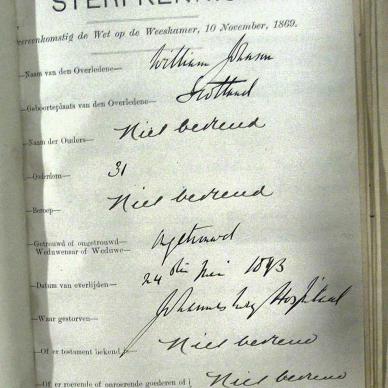 STERFKENNIS
eenkomstig de Wet op de Weeskamer, 10 November, 1869.
—Naam van den Overledene— William Johnson
—Geboorteplaats van den Overledene— Scotland
—Naam der Ouders— Niet bekend
—Ouderdom— 31
—Beroep— Niet bekend
—Getrouwd of ongetrouwd—
Weduwenaar of Weduwe— ongetrouwd
—Datum van overlijden— 24 1893
—Waar gestorven— Johannesburg Hospitaal
—Of er testament bekend is Niet bekend
—Of er roerende of onroerende goederen of Niet bekend